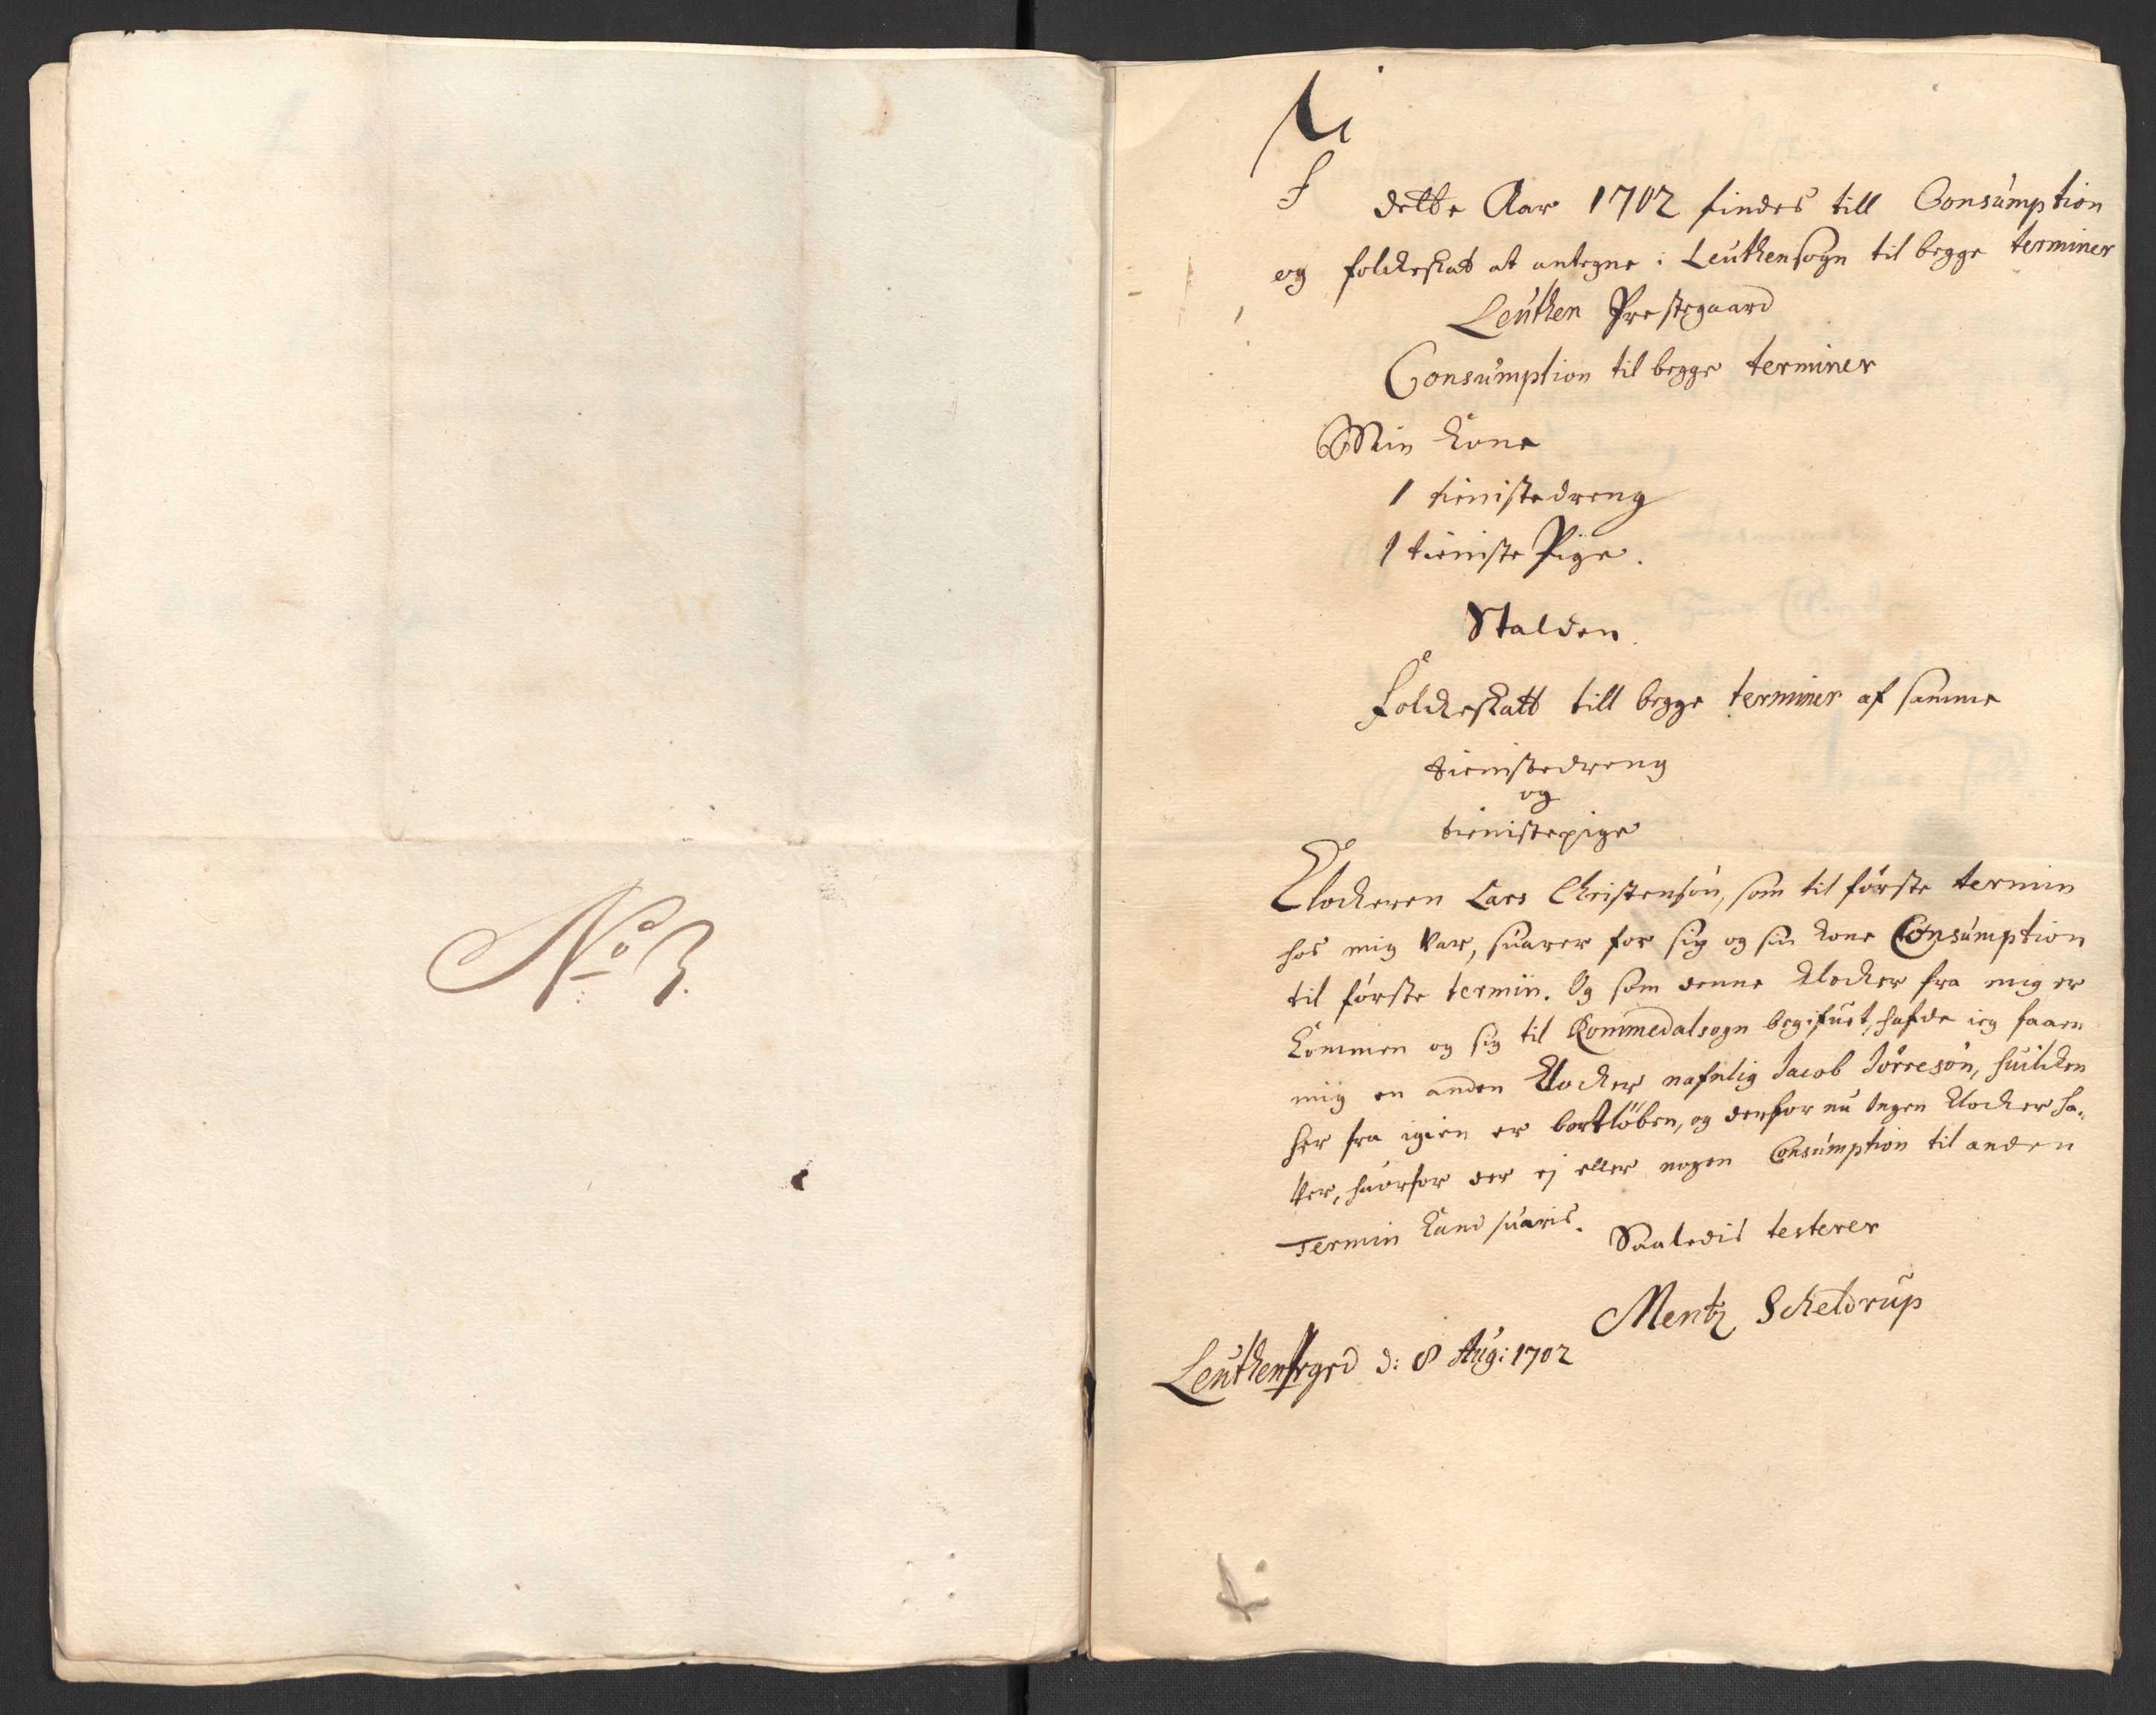 No 3.
I dette Aar 1702 findes till Consumption
og folckeskat at antegne i Leuthensogn til begge terminer
Leuthen Prestegaard
Consumption til begge terminer
Min Kone
1 tienistedreng
1 tieniste Pige.
Stalden
Folckeskatt till begge terminer af samme
tienistedreng
og
tienistepige
Klockeren Lars Christensøn, som til første termin
hos mig var, suarer for sig og sin Kone Consumption
til første termin. Og som denne Klocker fra mig er
Kommen og sig til Rommedalsogn begifuet, hafde ieg faaen
mig en anden Klocker nafnlig Jacob Jörresön, huilcken
her fra igien er bortlöben, og derfor nu Ingen Klocker ha¬
ver, huorfor der ej eller nogen Consumption til anden
Termin Kand suaris.
Saaledis testerer
Mentz Scheldrup
Leuthenprgrd d: 8 Aug: 1702